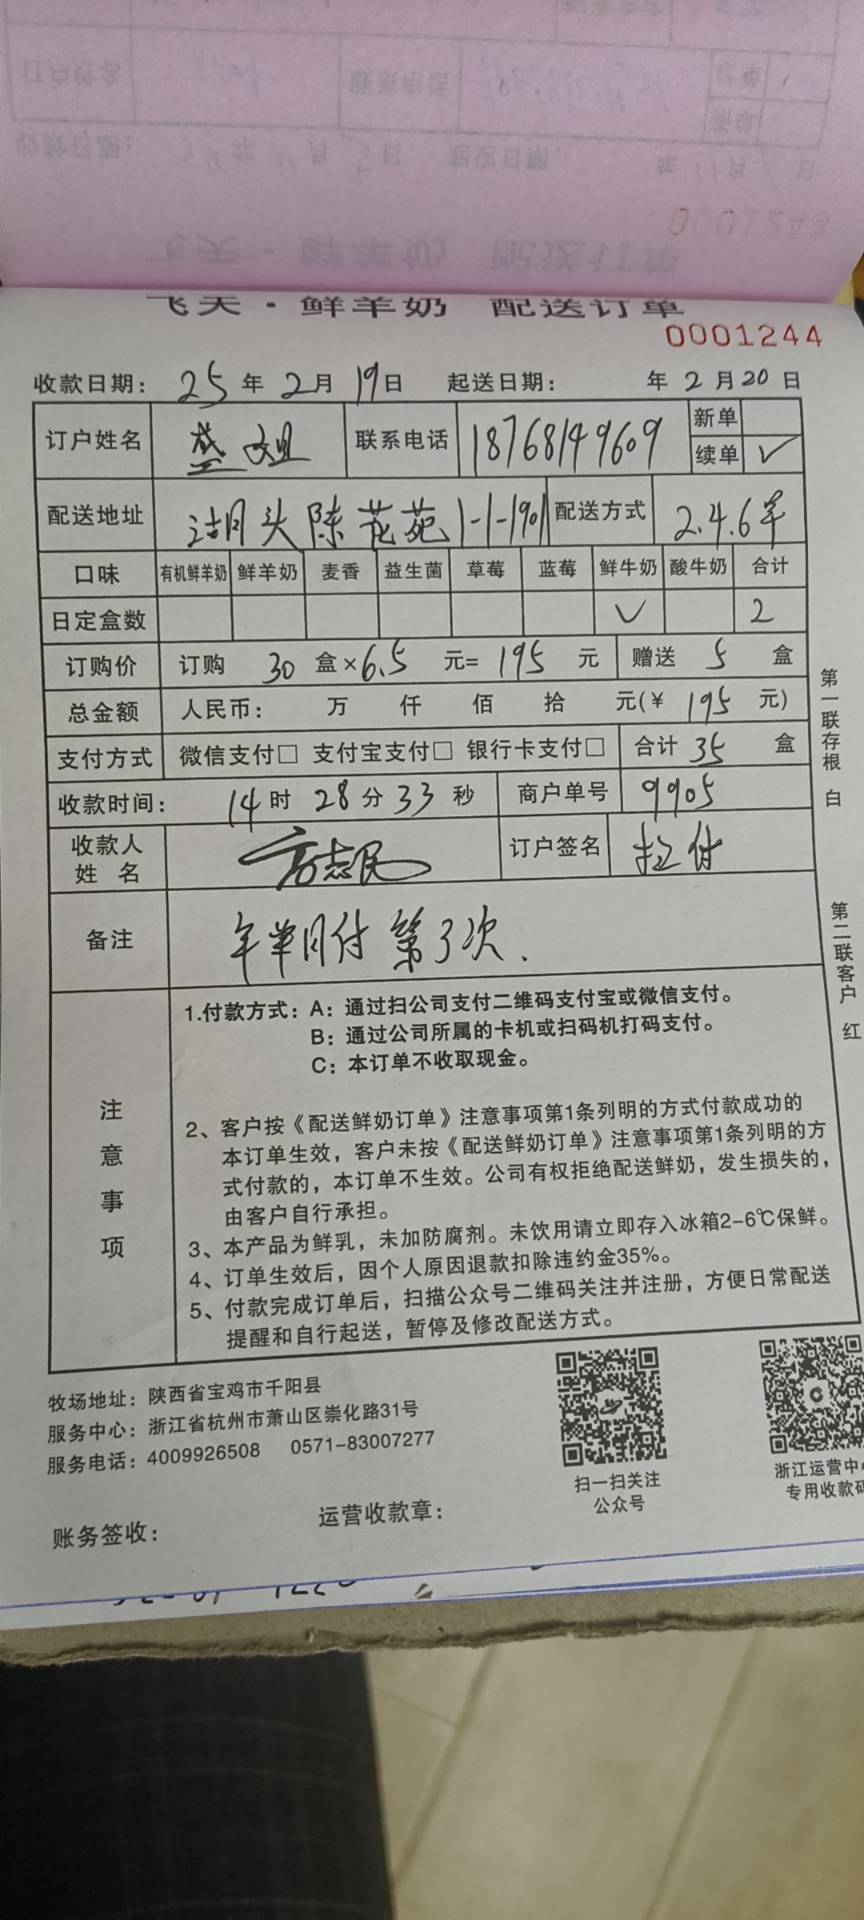 0001243
飞天·鲜羊奶 配送订单
0001244
收款日期: 25年2月19日 起送日期: 年2月20日
订户姓名 盛姐 联系电话 18768149609 新单
续单 ✓
配送地址 湖头陈花苑1-1-1901 配送方式 2.4.6羊
口味 有机鲜羊奶 鲜羊奶 麦香 益生菌 草莓 蓝莓 鲜牛奶 酸牛奶 合计
日定盒数 ✓ 2
订购价 订购 30 盒×6.5 元= 195 元 赠送 5 盒
总金额 人民币: 万 仟 佰 拾 元(¥ 195 元)
支付方式 微信支付□ 支付宝支付□ 银行卡支付□ 合计 35 盒
收款时间: 14时 28分 33秒 商户单号 9905
收款人
姓 名 高志民 订户签名 扫付
备注 年单月付 第3次.
第一联存根 白
第二联客户 红
注意事项
1.付款方式: A: 通过扫公司支付二维码支付宝或微信支付。
B: 通过公司所属的卡机或扫码机打码支付。
C: 本订单不收取现金。
2、客户按《配送鲜奶订单》注意事项第1条列明的方式付款成功的
本订单生效，客户未按《配送鲜奶订单》注意事项第1条列明的方
式付款的，本订单不生效。公司有权拒绝配送鲜奶，发生损失的，
由客户自行承担。
3、本产品为鲜乳，未加防腐剂。未饮用请立即存入冰箱2-6℃保鲜。
4、订单生效后，因个人原因退款扣除违约金35%。
5、付款完成订单后，扫描公众号二维码关注并注册，方便日常配送
提醒和自行起送，暂停及修改配送方式。
牧场地址: 陕西省宝鸡市千阳县
服务中心: 浙江省杭州市萧山区崇化路31号
服务电话: 4009926508 0571-83007277
扫一扫关注
公众号
浙江运营中心
专用收款码
账务签收: 运营收款章: